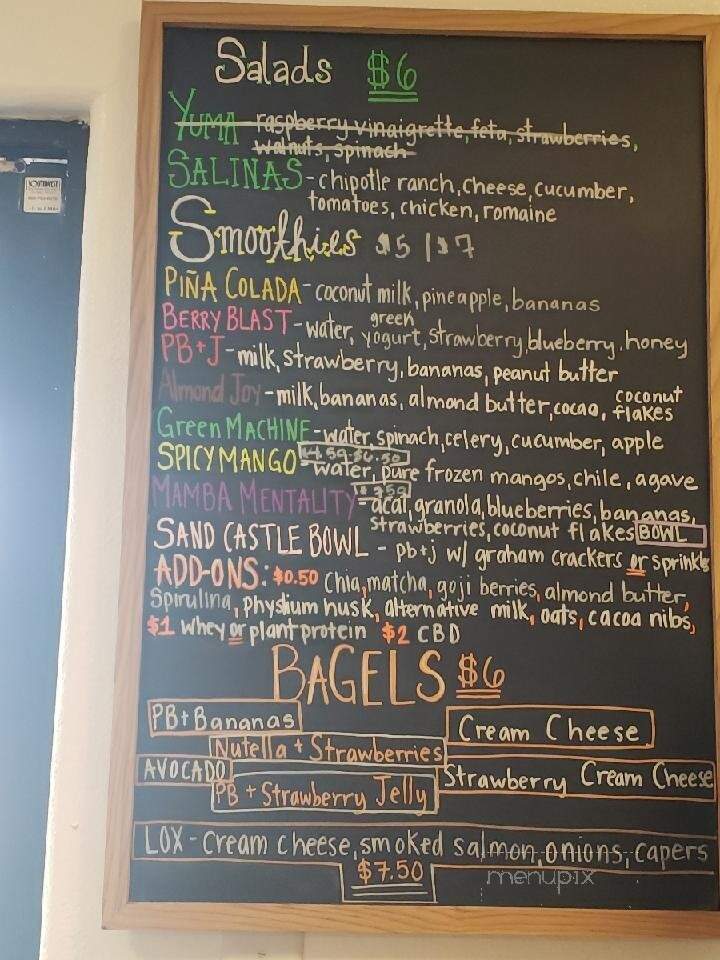 Salads $6
YUMA raspberry vinaigrette, feta, strawberries,
walnuts, spinach
SALINAS - chipotle ranch, cheese, cucumber,
tomatoes, chicken, romaine
Smoothies $5 | $7
PIÑA COLADA - coconut milk, pineapple, bananas
BERRY BLAST - water, green yogurt, strawberry, blueberry, honey
PB+J - milk, strawberry, bananas, peanut butter
Almond Joy - milk, bananas, almond butter, cocao, coconut flakes
Green MACHINE - water, spinach, celery, cucumber, apple
SPICY MANGO $4.50-$6.50 - water, pure frozen mangos, chile, agave
MAMBA MENTALITY - acai, granola, blueberries, bananas,
strawberries, coconut flakes BOWL
SAND CASTLE BOWL - pb+j w/ graham crackers or sprinkls
ADD-ONS: $0.50 Chia, matcha, goji berries, almond butter,
Spirulina, physlium husk, alternative milk, oats, cacoa nibs,
$1 whey or plant protein $2 CBD
BAGELS $6
PB+Bananas
Cream Cheese
Nutella + Strawberries
AVOCADO
Strawberry Cream Cheese
PB + Strawberry Jelly
LOX - Cream cheese, smoked salmon, onions, capers
$7.50
menupix